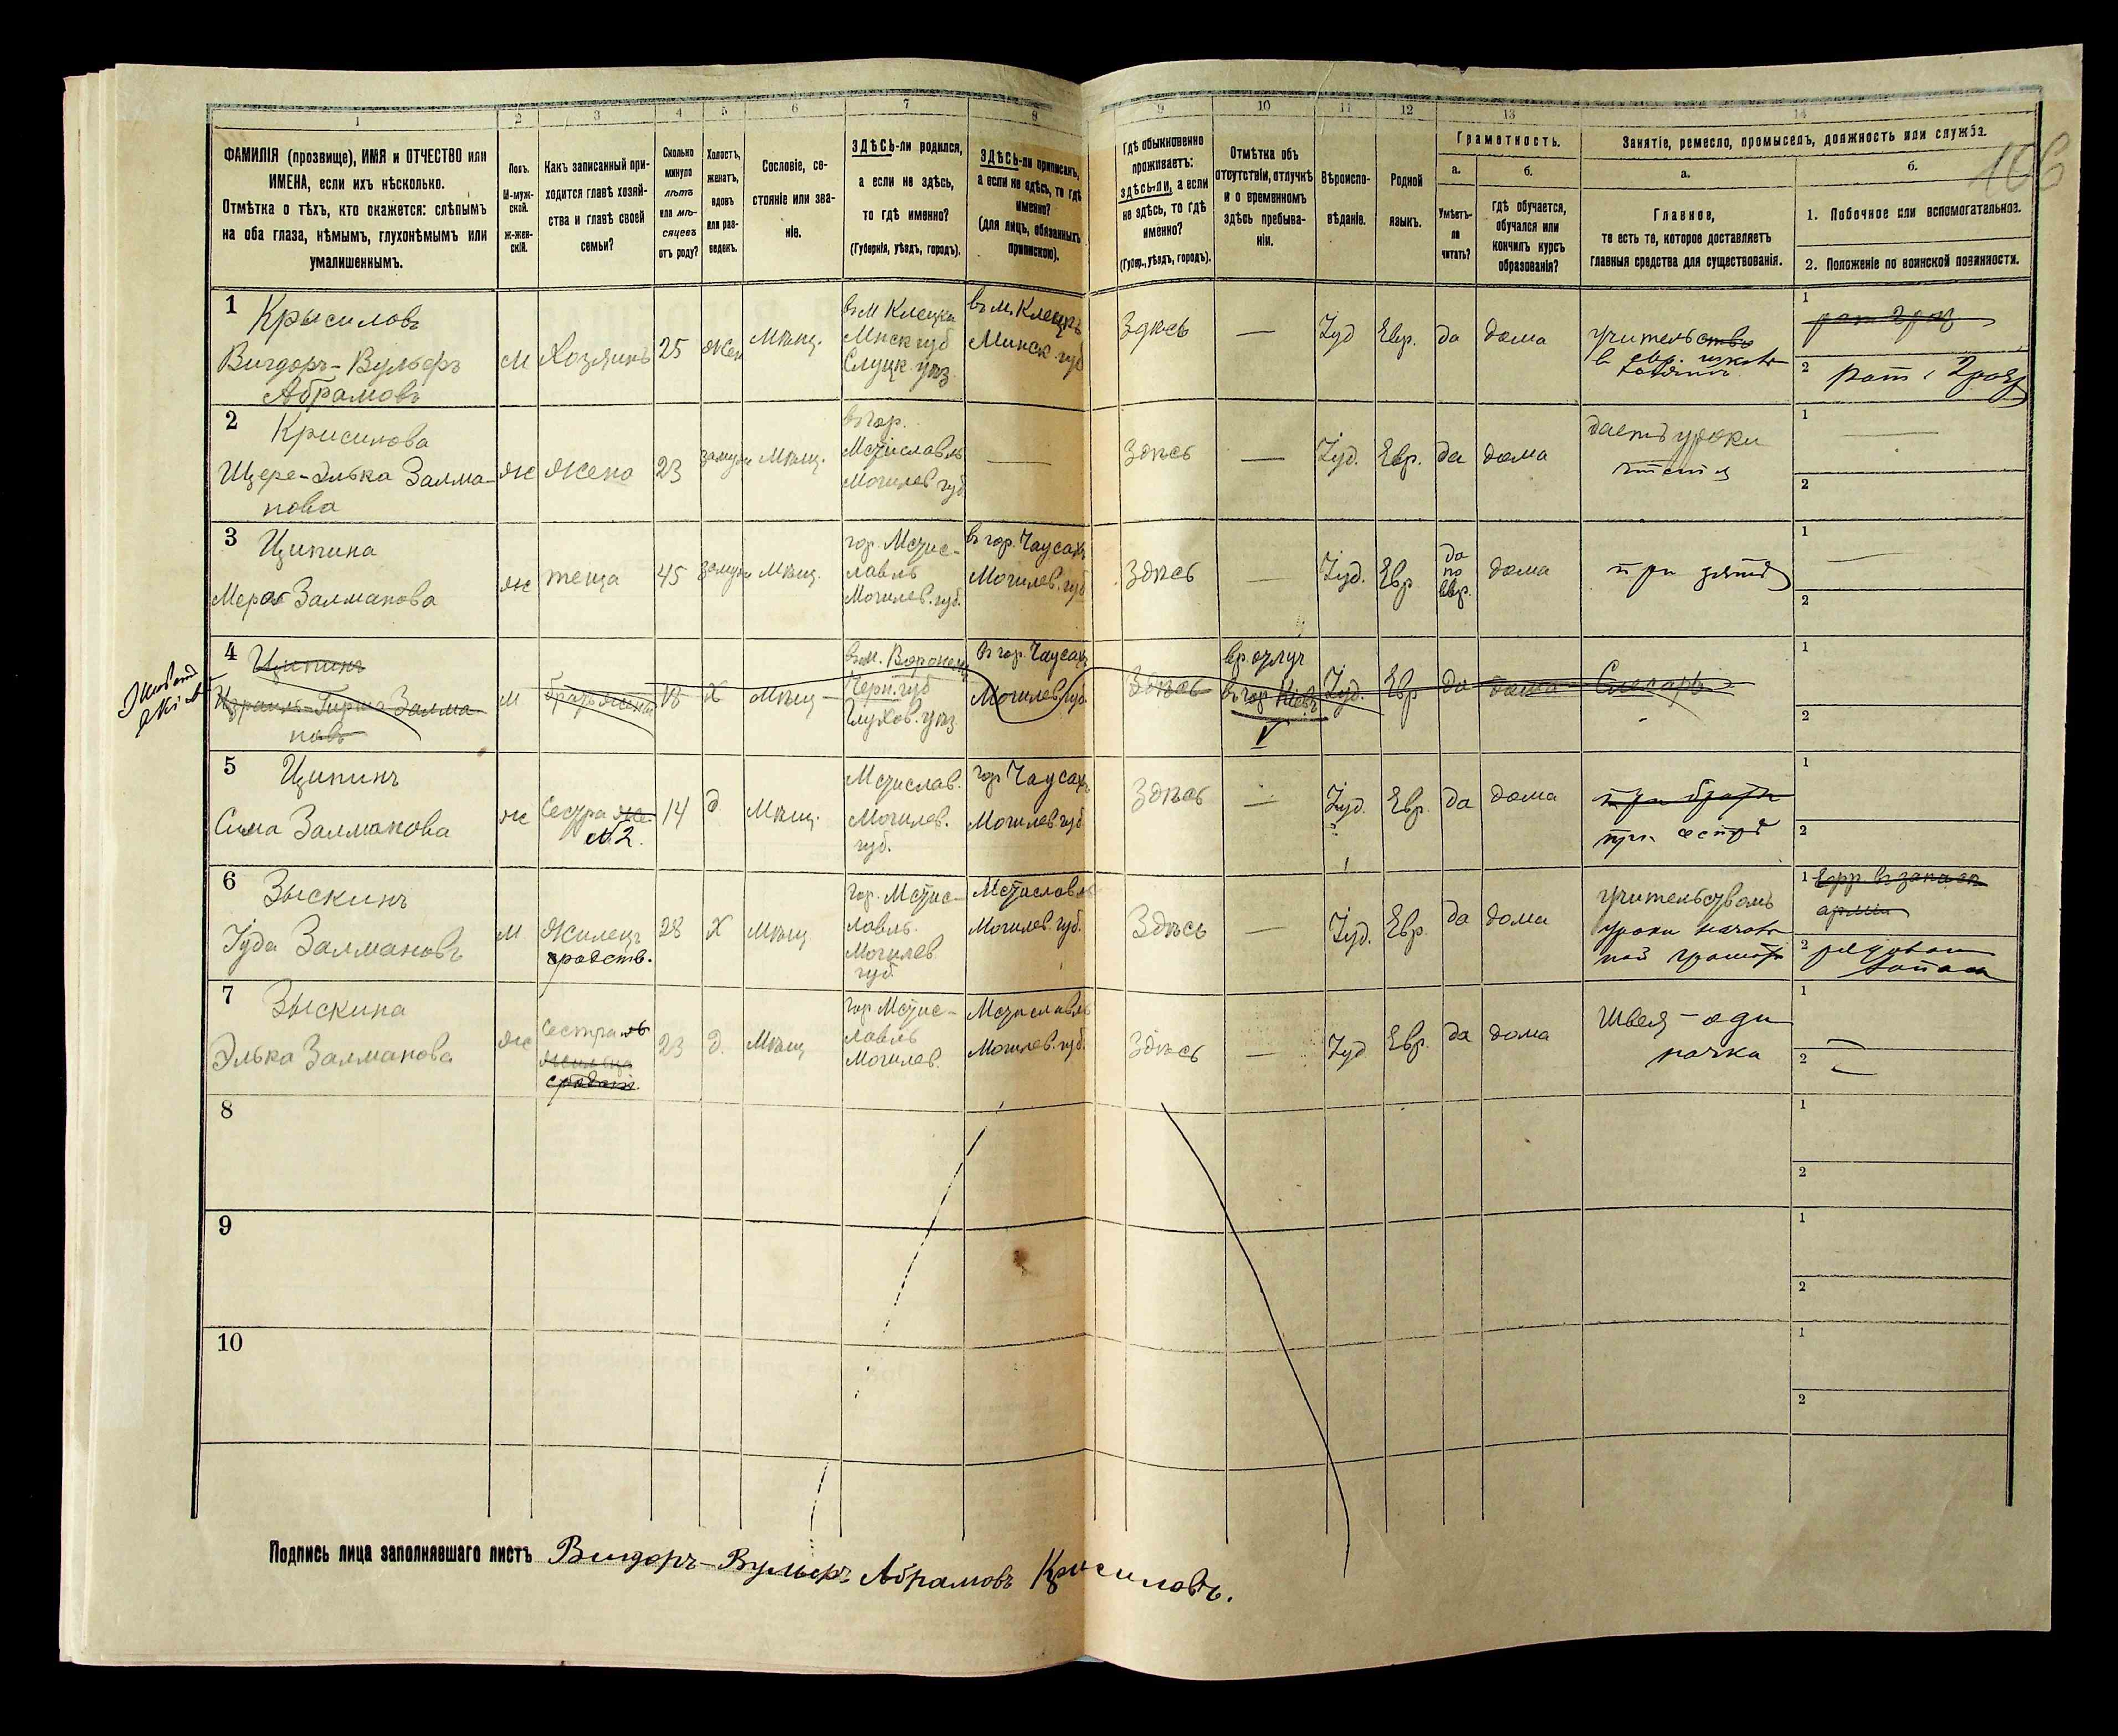 1 2 3 4 5 6 7 8 9 10 11 12 13 14
106
ФАМИЛІЯ (прозвище), ИМЯ и ОТЧЕСТВО или
ИМЕНА, если ихъ нѣсколько.
Отмѣтка о тѣхъ, кто окажется: слѣпымъ
на оба глаза, нѣмымъ, глухонѣмымъ или
умалишеннымъ.
Полъ.
М-муж-
ской.
Ж-жен-
скій.
Какъ записанный при-
ходится главѣ хозяй-
ства и главѣ своей
семьи?
Сколько
минуло
лѣтъ
или мѣ-
сяцевъ
отъ роду?
Холостъ,
женатъ,
вдовъ
или раз-
веденъ.
Сословіе, со-
стояніе или зва-
ніе.
ЗДѢСЬ-ли родился,
а если не здѣсь,
то гдѣ именно?
(Губернія, уѣздъ, городъ).
ЗДѢСЬ-ли приписанъ,
а если не здѣсь, то гдѣ
именно?
(для лицъ, обязанныхъ
припискою).
Гдѣ обыкновенно
проживаетъ:
здѣсь-ли, а если
не здѣсь, то гдѣ
именно?
(Губер., уѣздъ, городъ).
Отмѣтка объ
отсутствіи, отлучкѣ
и о временномъ
здѣсь пребыва-
ніи.
Вѣроиспо-
вѣданіе.
Родной
языкъ.
Грамотность.
а.
Умѣетъ-
ли
читать?
б.
Гдѣ обучается,
обучался или
кончилъ курсъ
образованія?
Занятіе, ремесло, промыселъ, должность или служба.
а.
Главное,
то есть то, которое доставляетъ
главныя средства для существованія.
б.
1. Побочное или вспомогательное.
2. Положеніе по воинской повинности.
1
Крысиловъ
Вигдоръ-Вульфъ
Абрамовъ
М
Хозяинъ
25
жен
Мѣщ.
въ м Клецкѣ
Минск губ
Слуцк. уѣз.
въ м. Клецкѣ
Минск. губ
Здѣсь
—
Іуд
Евр.
да
дома
учительство
в евр.
1
2 рат. 2 раз
2
Крисилова
Щере-Элька Залма-
нова
Ж
Жена
23
замуж
Мѣщ.
въ гор.
Мстиславль
Могилев губ
—
Здѣсь
—
Іуд.
Евр.
да
дома
даетъ уроки
чтенія
1 —
2
3
Ципина
Мера Залманова
Ж
теща
45
замуж
Мѣщ.
гор. Мстис-
лавль
Могилев. губ.
въ гор. Чаусахъ
Могилев. губ
Здѣсь
—
Іуд.
Евр
да
по
евр.
дома
при зятѣ
1 —
2
4
Ципинъ
Израиль-Гирша Залма-
новъ
М
братъ жены
18
Х
Мѣщ
въ м. Воронежъ
Черн. губ
Глухов. уѣз
въ гор. Чаусахъ
Могилев. губ.
Здѣсь
вр. отлуч
въ гор. Кіевъ
Іуд.
Евр
да
дома
Слесарь
1
2
5
Ципинъ
Сима Залманова
Ж
Сестра же
№2.
14
д
Мѣщ.
Мстислав.
Могилев.
губ.
гор Чаусахъ
Могилев губ
Здѣсь
—
Іуд.
Евр.
да
дома
при братѣ
при сестрѣ
1
2
6
Зыскинъ
Іуда Залмановъ
М
Жилецъ
родств.
28
Х
Мѣщ.
гор. Мстис-
лавль.
Могилев.
губ.
Мстиславль
Могилев. губ.
Здѣсь
—
Іуд.
Евр.
да
дома
учительствомъ
уроки
ной грамоты
1
арміи
2 рядовой
запаса
7
Зыскина
Элька Залманова
Ж
Сестра №6
23
д.
Мѣщ
гор Мстис-
лавль
Могилев.
Мстиславль
Могилев. губ.
Здѣсь
—
Іуд
Евр.
да
дома
Швея – оди
ночка
1
2
8
1
2
9
1
2
10
1
2
Подпись лица заполнявшаго листъ Вигдоръ-Вульфъ Абрамовъ Крисиловъ.